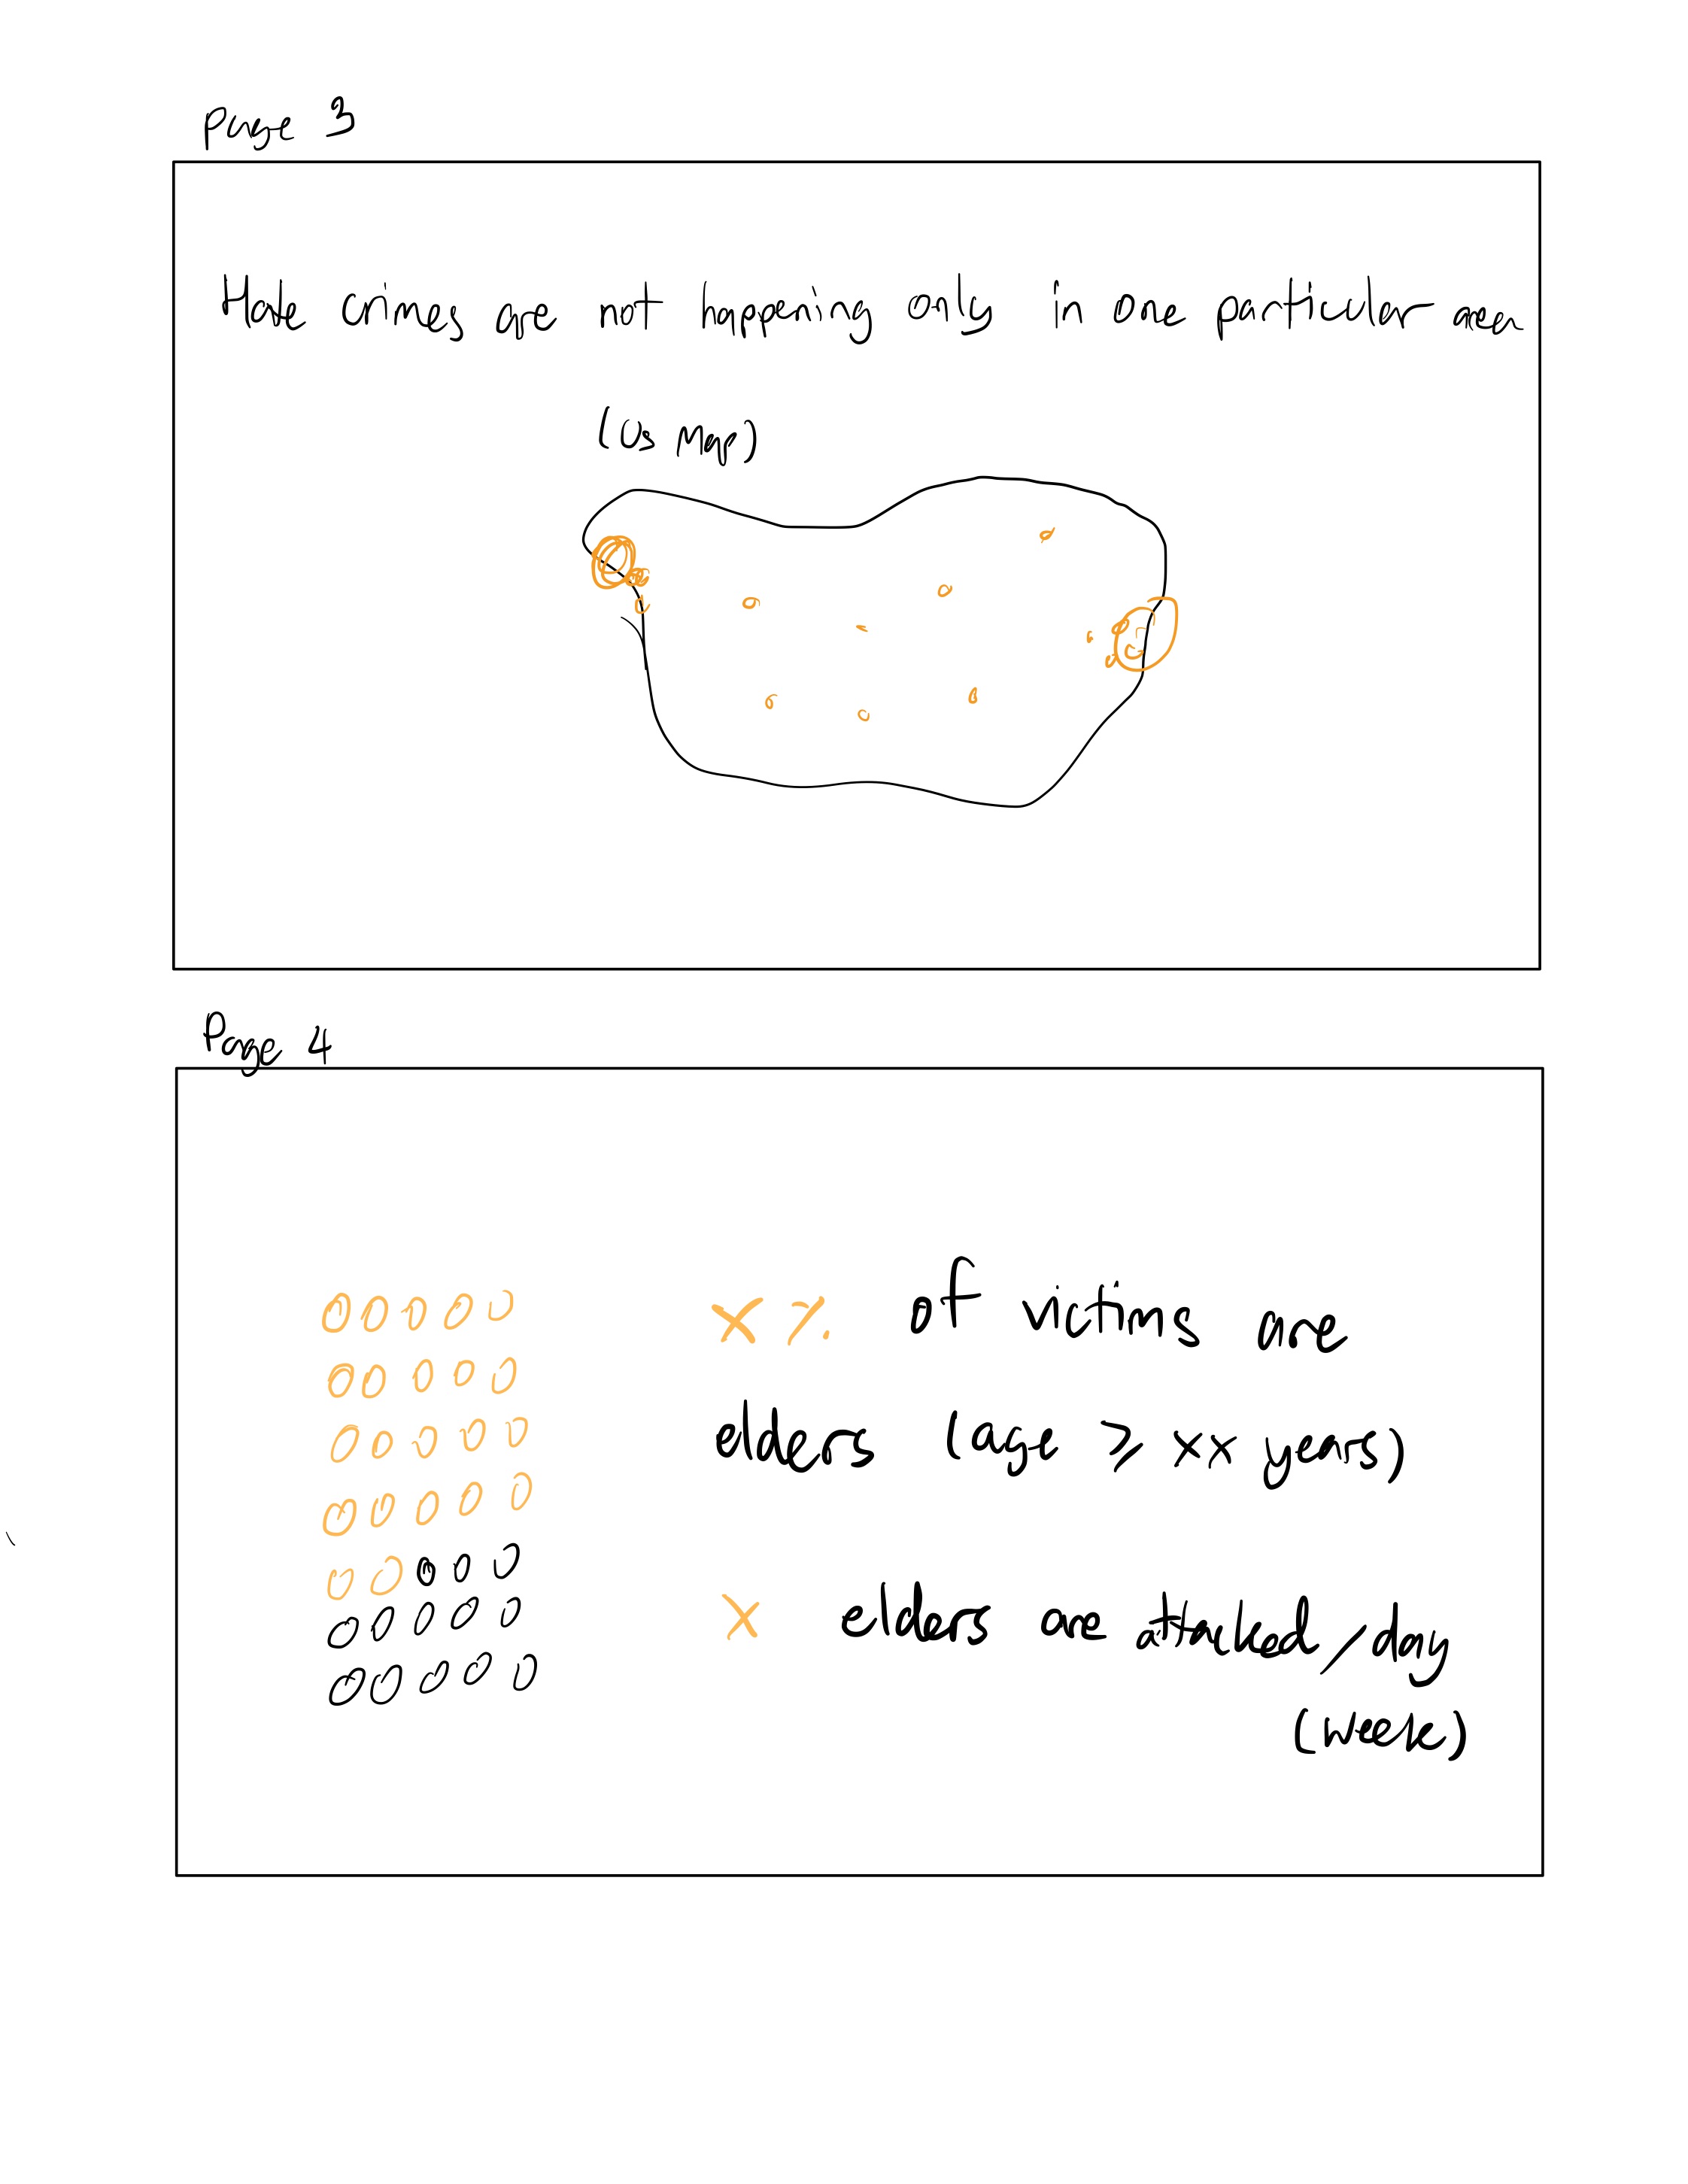 Page 3
Hate crimes are not happening only in one particular area
(Us Map)
Page 4
x % of victims are
elders (age ≥ xx years)
x elders are attacked/day
(week)